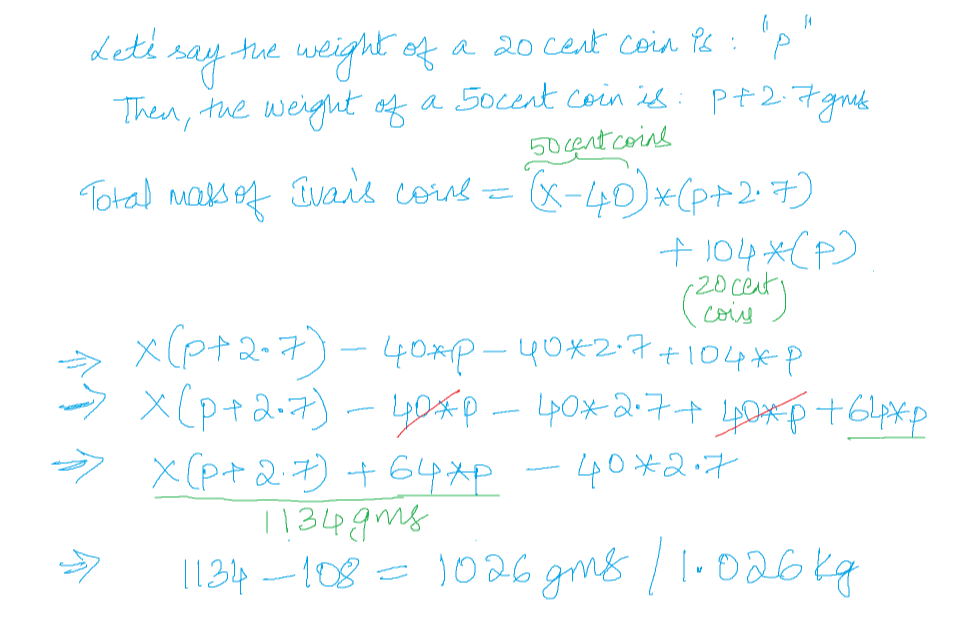 Let's say the weight of a 20 cent coin is : "p"
Then, the weight of a 50cent coin is : p+2.7gms
50 cent coins
Total mass of Ivan's coins = (x-40)*(p+2.7)
+ 104*(p)
(20 cent coins)
⇒ x(p+2.7) - 40*p - 40*2.7 + 104*p
⇒ x(p+2.7) - 40*p - 40*2.7 + 40*p + 64*p
⇒ x(p+2.7) + 64*p - 40*2.7
1134gms
⇒ 1134 - 108 = 1026 gms / 1.026 kg